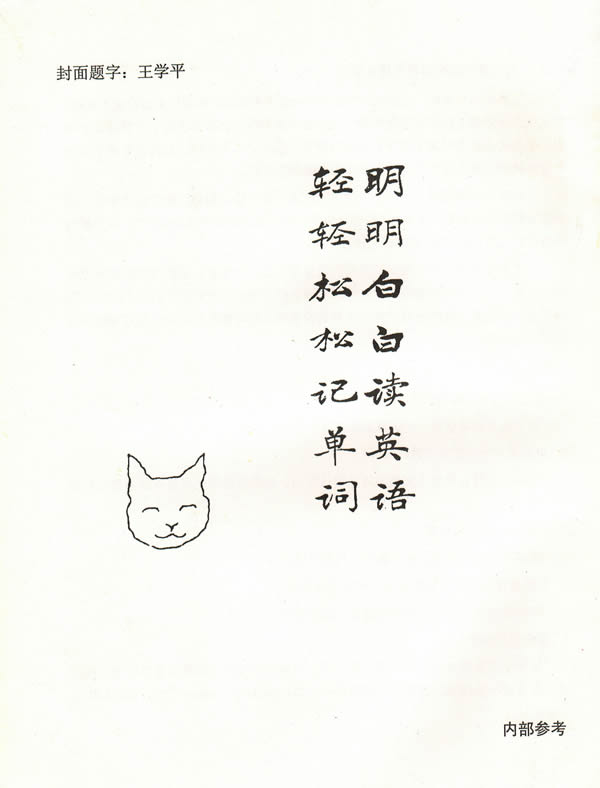 封面题字：王学平
明明白白读英语
轻轻松松记单词
内部参考